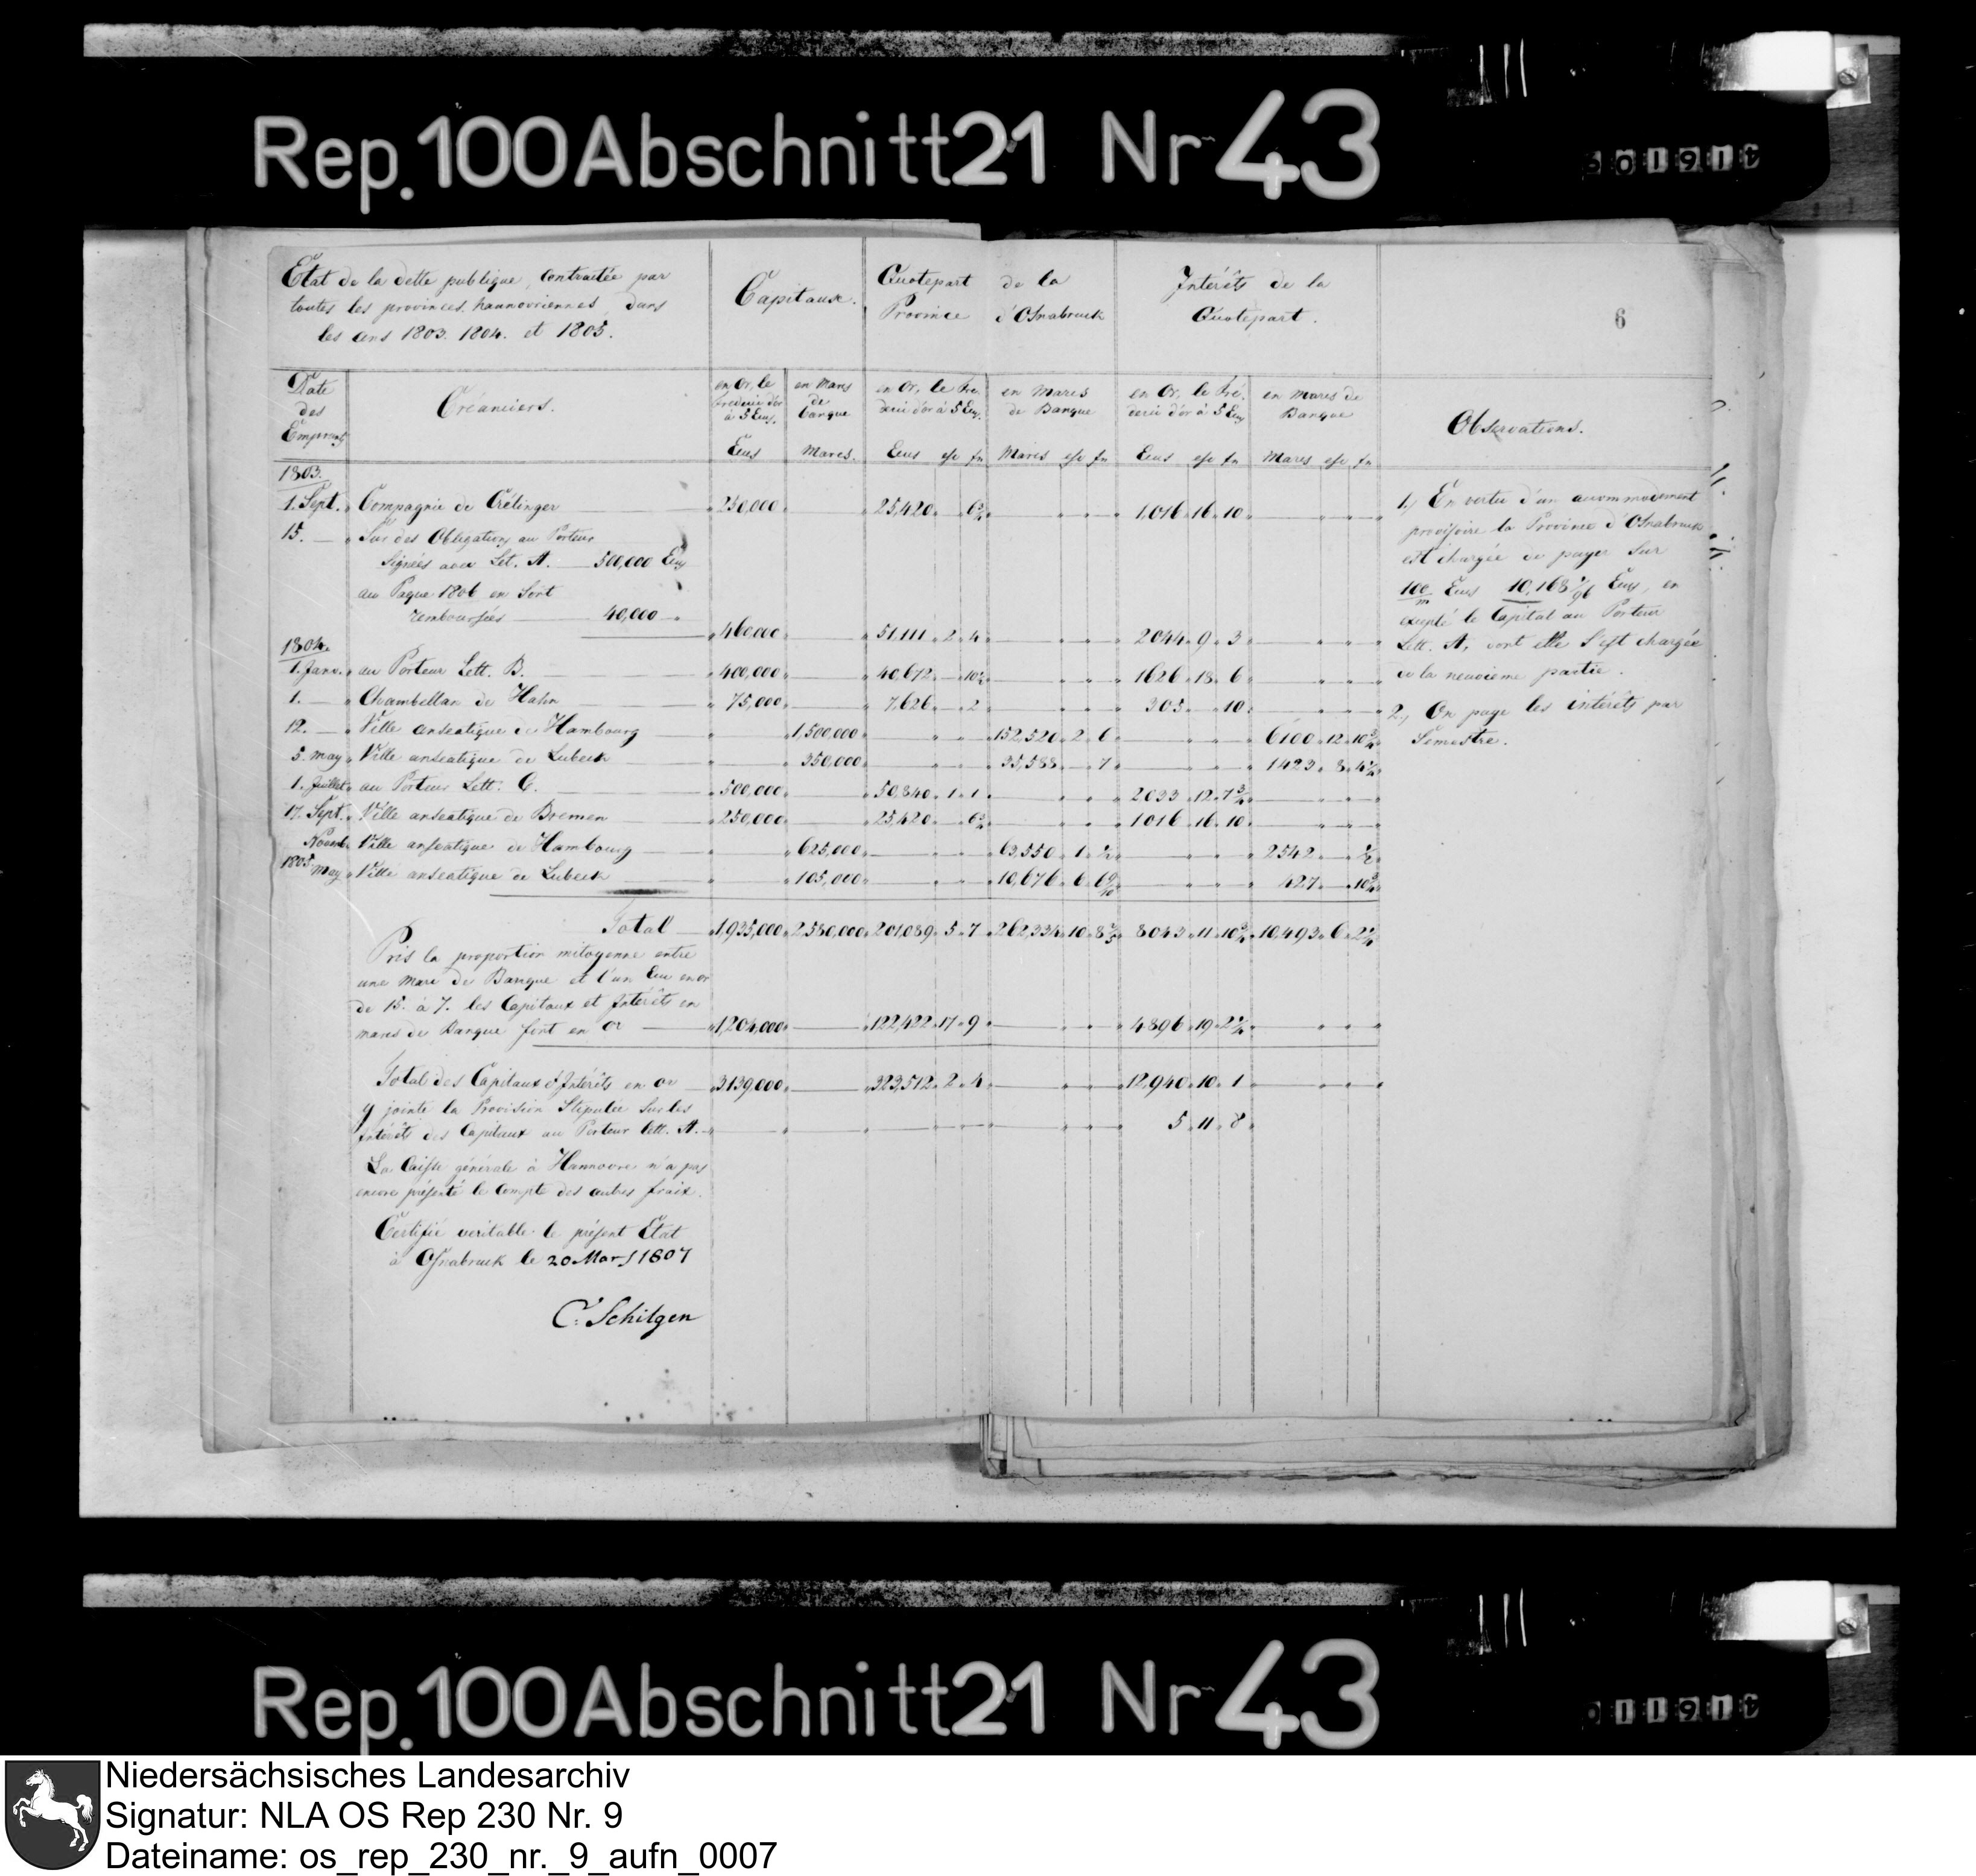 Rep. 100 Abschnitt 21 Nr 43
Etat de la dette publique, contractée par
toutes les provinces hannovriennes dans
les ans 1803. 1804. et 1805.
Capitaux.
Quotepart de la
Province d'Osnabruck
Intérêts de la
Quotepart.
6
Date
des
Emprunts
Créanciers.
en Or, le
Frederic d'or
à 5 Ecus.
Ecus
en Marcs
de
banque
Marcs.
en Or, le Fre-
deric d'or à 5 Ecus.
Ecus
en Marcs
de Banque
Marcs
en Or, le Fré-
deric d'or à 5 Ecus
Ecus
en Marcs de
Banque
Marcs
Observations.
1803.
1. Sept. Compagnie de Crélinger 250,000 25,420 6¾ 1,016 16 10
15. — Sur des Obligations au Porteur
Signées avec Let. A. 500,000 Ecus
au Paque 1806 en sont
remboursées 40,000
460,000 51,111 2 4 2044 9 3
1804.
1. Janv. au Porteur Lett. B. 400,000 40,672 10½ 1626 18 6
1. — Chambellan de Hahn 75,000 7,626 2 305 10
12. — Ville anseatique de Hambourg 1,500,000 152,520 2 6 6100 12 10¾
5. may Ville anseatique de Lubeck 350,000 35,588 7 1423 8 4½
1. Juillet au Porteur Lett. C. 500,000 50,840 1 1 2033 12 7¾
17. Sept. Ville anseatique de Bremen 250,000 25,420 6¾ 1016 16 10
Novemb. Ville anseatique de Hambourg 625,000 63,550 1 ½ 2542 ½
1805 may Ville anseatique de Lubeck 105,000 10,676 6 6 427 10¾
Total 1,935,000 2,580,000 201,089 5 7 262,334 10 8 8043 11 10¾ 10,493 6 2
Pris la proportion mitoyenne entre
une marc de Banque et l'un Ecu en or
de 15. à 7. les Capitaux et Intérêts en
marcs de Banque font en or 1,204,000 122,422 17 9 4896 19 2
Total des Capitaux d'Intérêts en or 3139,000 323,512 2 4 12,940 10 1
y jointe la Provision stipulée sur les
Intérêts des Capitaux au Porteur Lett. A. 5 11 8
La Caisse générale à Hannovre n'a pas
encore présenté le Compte des autres fraix.
Certifié veritable le présent Etat
à Osnabruck le 20 Mars 1807
C. Schilgen
1., En vertu d'un accommodement
provisoire la Province d'Osnabruck
est chargée de payer sur
100/m Ecus 10,168 Ecus, en
excepté le Capital au Porteur
Lett. A, dont elle s'est chargée
de la neuvieme partie.
2., On paye les intérêts par
Semestre.
Rep. 100 Abschnitt 21 Nr 43
Niedersächsisches Landesarchiv
Signatur: NLA OS Rep 230 Nr. 9
Dateiname: os_rep_230_nr._9_aufn_0007